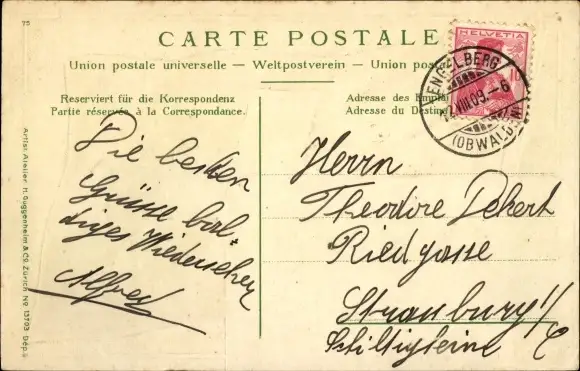 75
CARTE POSTALE
Union postale universelle — Weltpostverein — Union postale
HELVETIA
10
ENGELBERG
12.VIII.09.–6
(OBWALDEN)
Reserviert für die Korrespondenz
Partie réservée à la Correspondance.
Adresse des Empfän
Adresse du Destina
Die besten
Grüsse bal-
diges Wiedersehen
Alfred
Herrn
Theodore Dekert
Riedgasse
Strassburg i/
Schiltigheim
Artist. Atelier H. Guggenheim & Co. Zürich No. 13703 Dép.